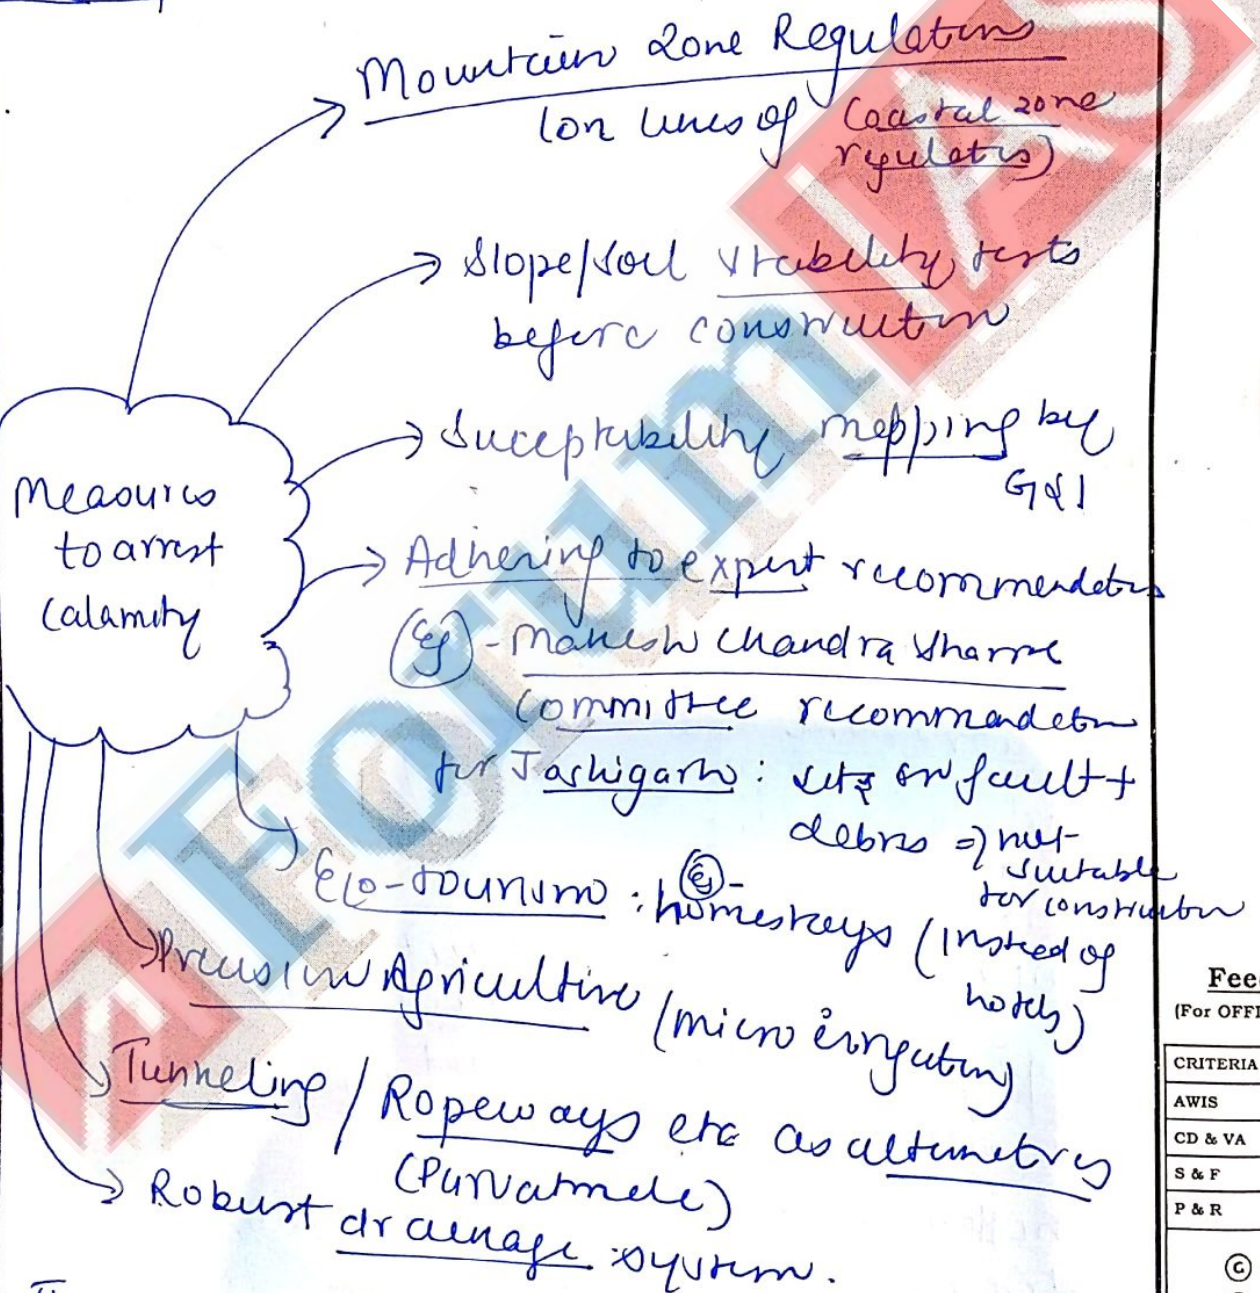 Mountain Zone Regulations
(on lines of Coastal zone
regulations)
Slope/soil stability tests
before construction
Suceptability mapping by
GSI
Measures
to arrest
calamity
Adhering to expert recommendations
Eg - Mahesh Chandra Sharma
Committee recommendation
for Joshigarh: sits on fault +
debris => not
suitable
for construction
Eco-tourism : Eg - homestays (instead of
hotels)
Precision Agriculture (micro irrigation)
Tunneling / Ropeways etc as alternatives
(Parvatmala)
Robust drainage system.
Forum IAS
Fee
(For OFFI
CRITERIA
AWIS
CD & VA
S & F
P & R
©